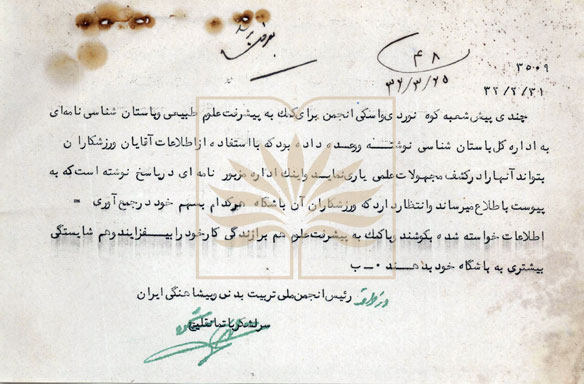 ۴۸
۳۵۰۹
۳۲/۳/۲۵
۳۲/۲/۳۱
چندی پیش شعبه کوه نوردی واسکی انجمن برای کمک به پیشرفت علوم طبیعی وباستان شناسی نامه‌ای
به اداره کل باستان شناسی نوشته ووعده داده بود که با استفاده از اطلاعات آقایان ورزشکاران
بتواند آنها را در کشف مجهولات علمی یاری نماید واینک اداره مزبور نامه ای در پاسخ نوشته است که به
پیوست باطلاع میرساند وانتظار دارد که ورزشکاران آن باشگاه هرکدام بسهم خود در جمع آوری =
اطلاعات خواسته شده بکوشند وباکمک به پیشرفت علوم هم برازندگی کار خود را بیفزایند وهم شایستگی
بیشتری به باشگاه خود بدهند ۰ ـ ب
رئیس انجمن ملی تربیت بدنی وپیشاهنگی ایران
سرلشکر باتمانقلیچ